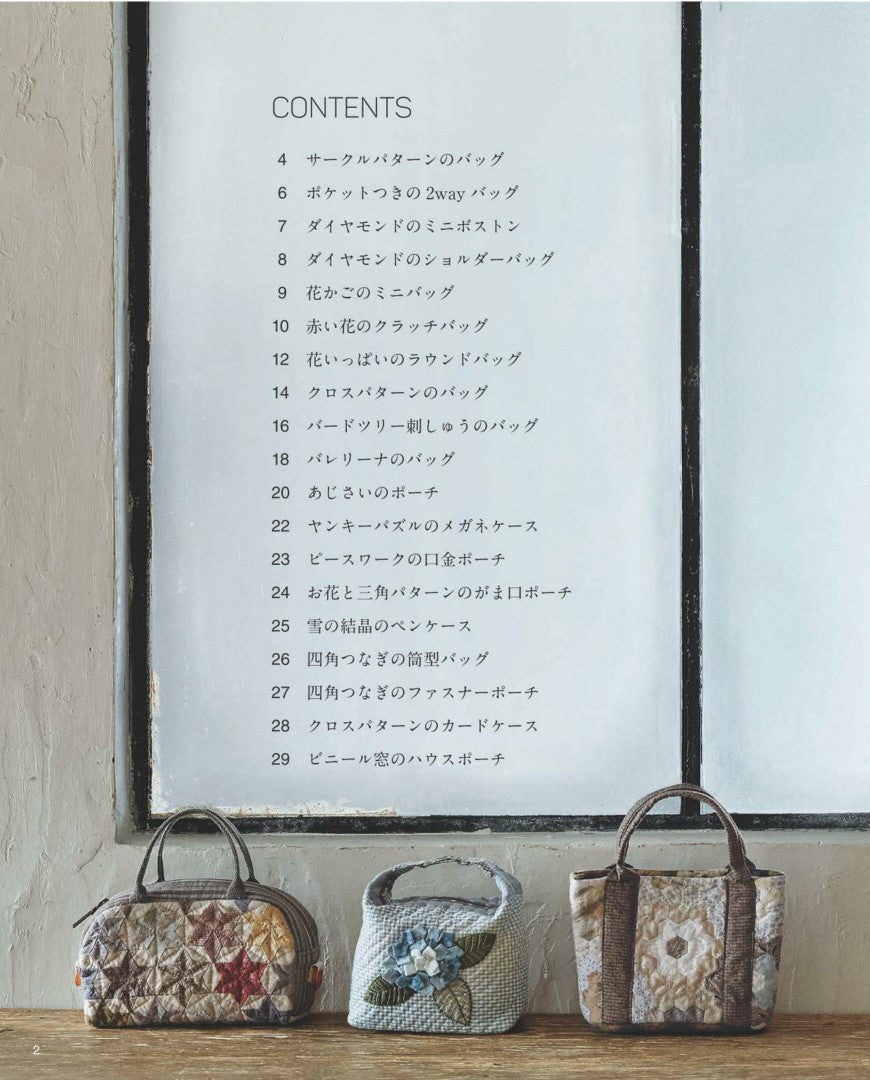 CONTENTS
4 サークルパターンのバッグ
6 ポケットつきの2wayバッグ
7 ダイヤモンドのミニボストン
8 ダイヤモンドのショルダーバッグ
9 花かごのミニバッグ
10 赤い花のクラッチバッグ
12 花いっぱいのラウンドバッグ
14 クロスパターンのバッグ
16 バードツリー刺しゅうのバッグ
18 バレリーナのバッグ
20 あじさいのポーチ
22 ヤンキーパズルのメガネケース
23 ピースワークの口金ポーチ
24 お花と三角パターンのがま口ポーチ
25 雪の結晶のペンケース
26 四角つなぎの筒型バッグ
27 四角つなぎのファスナーポーチ
28 クロスパターンのカードケース
29 ビニール窓のハウスポーチ
2